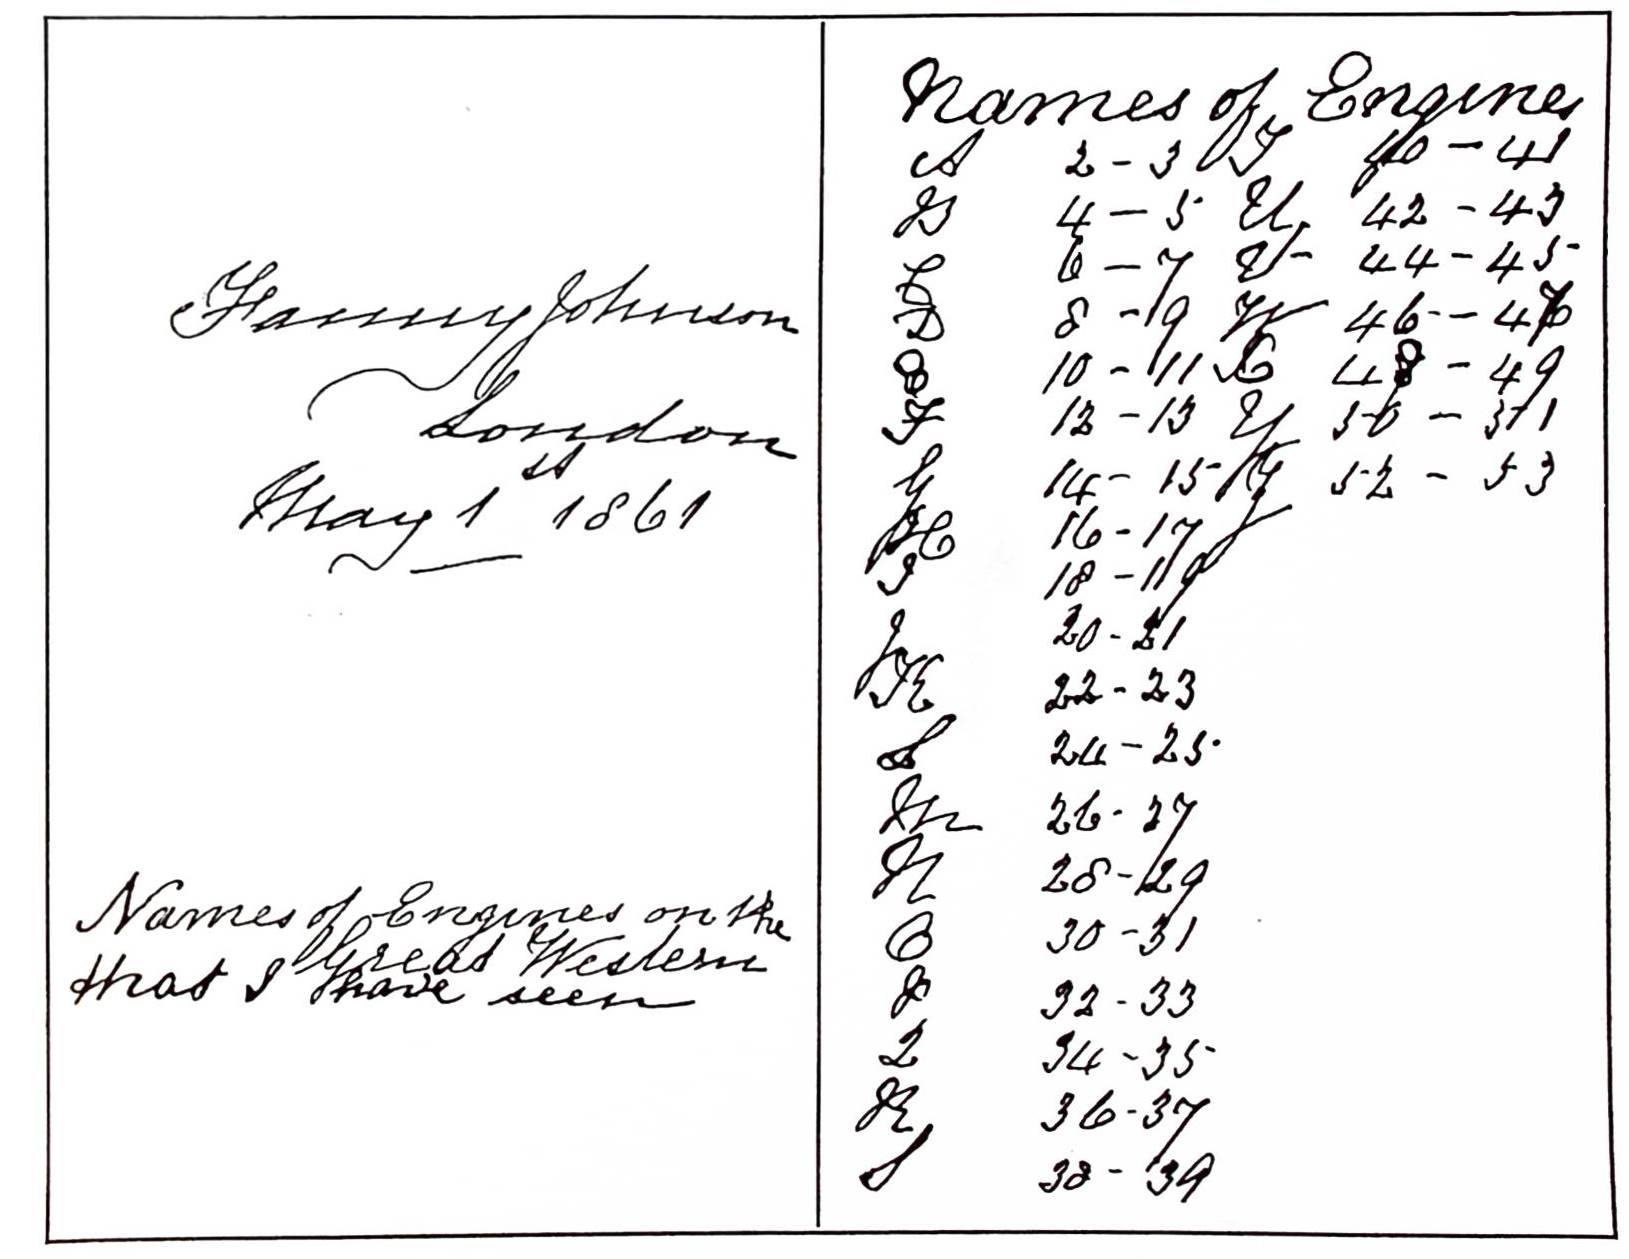 Fanny Johnson
London
May 1st 1861
Names of Engines on the
Great Western
that I have seen
Names of Engines
A 2-3 T 40-41
B 4-5 U 42-43
C 6-7 V 44-45
D 8-9 W 46-47
E 10-11 X 48-49
F 12-13 Y 50-51
G 14-15 Z 52-53
H 16-17
I 18-19
J 20-21
K 22-23
L 24-25
M 26-27
N 28-29
O 30-31
P 32-33
Q 34-35
R 36-37
S 38-39